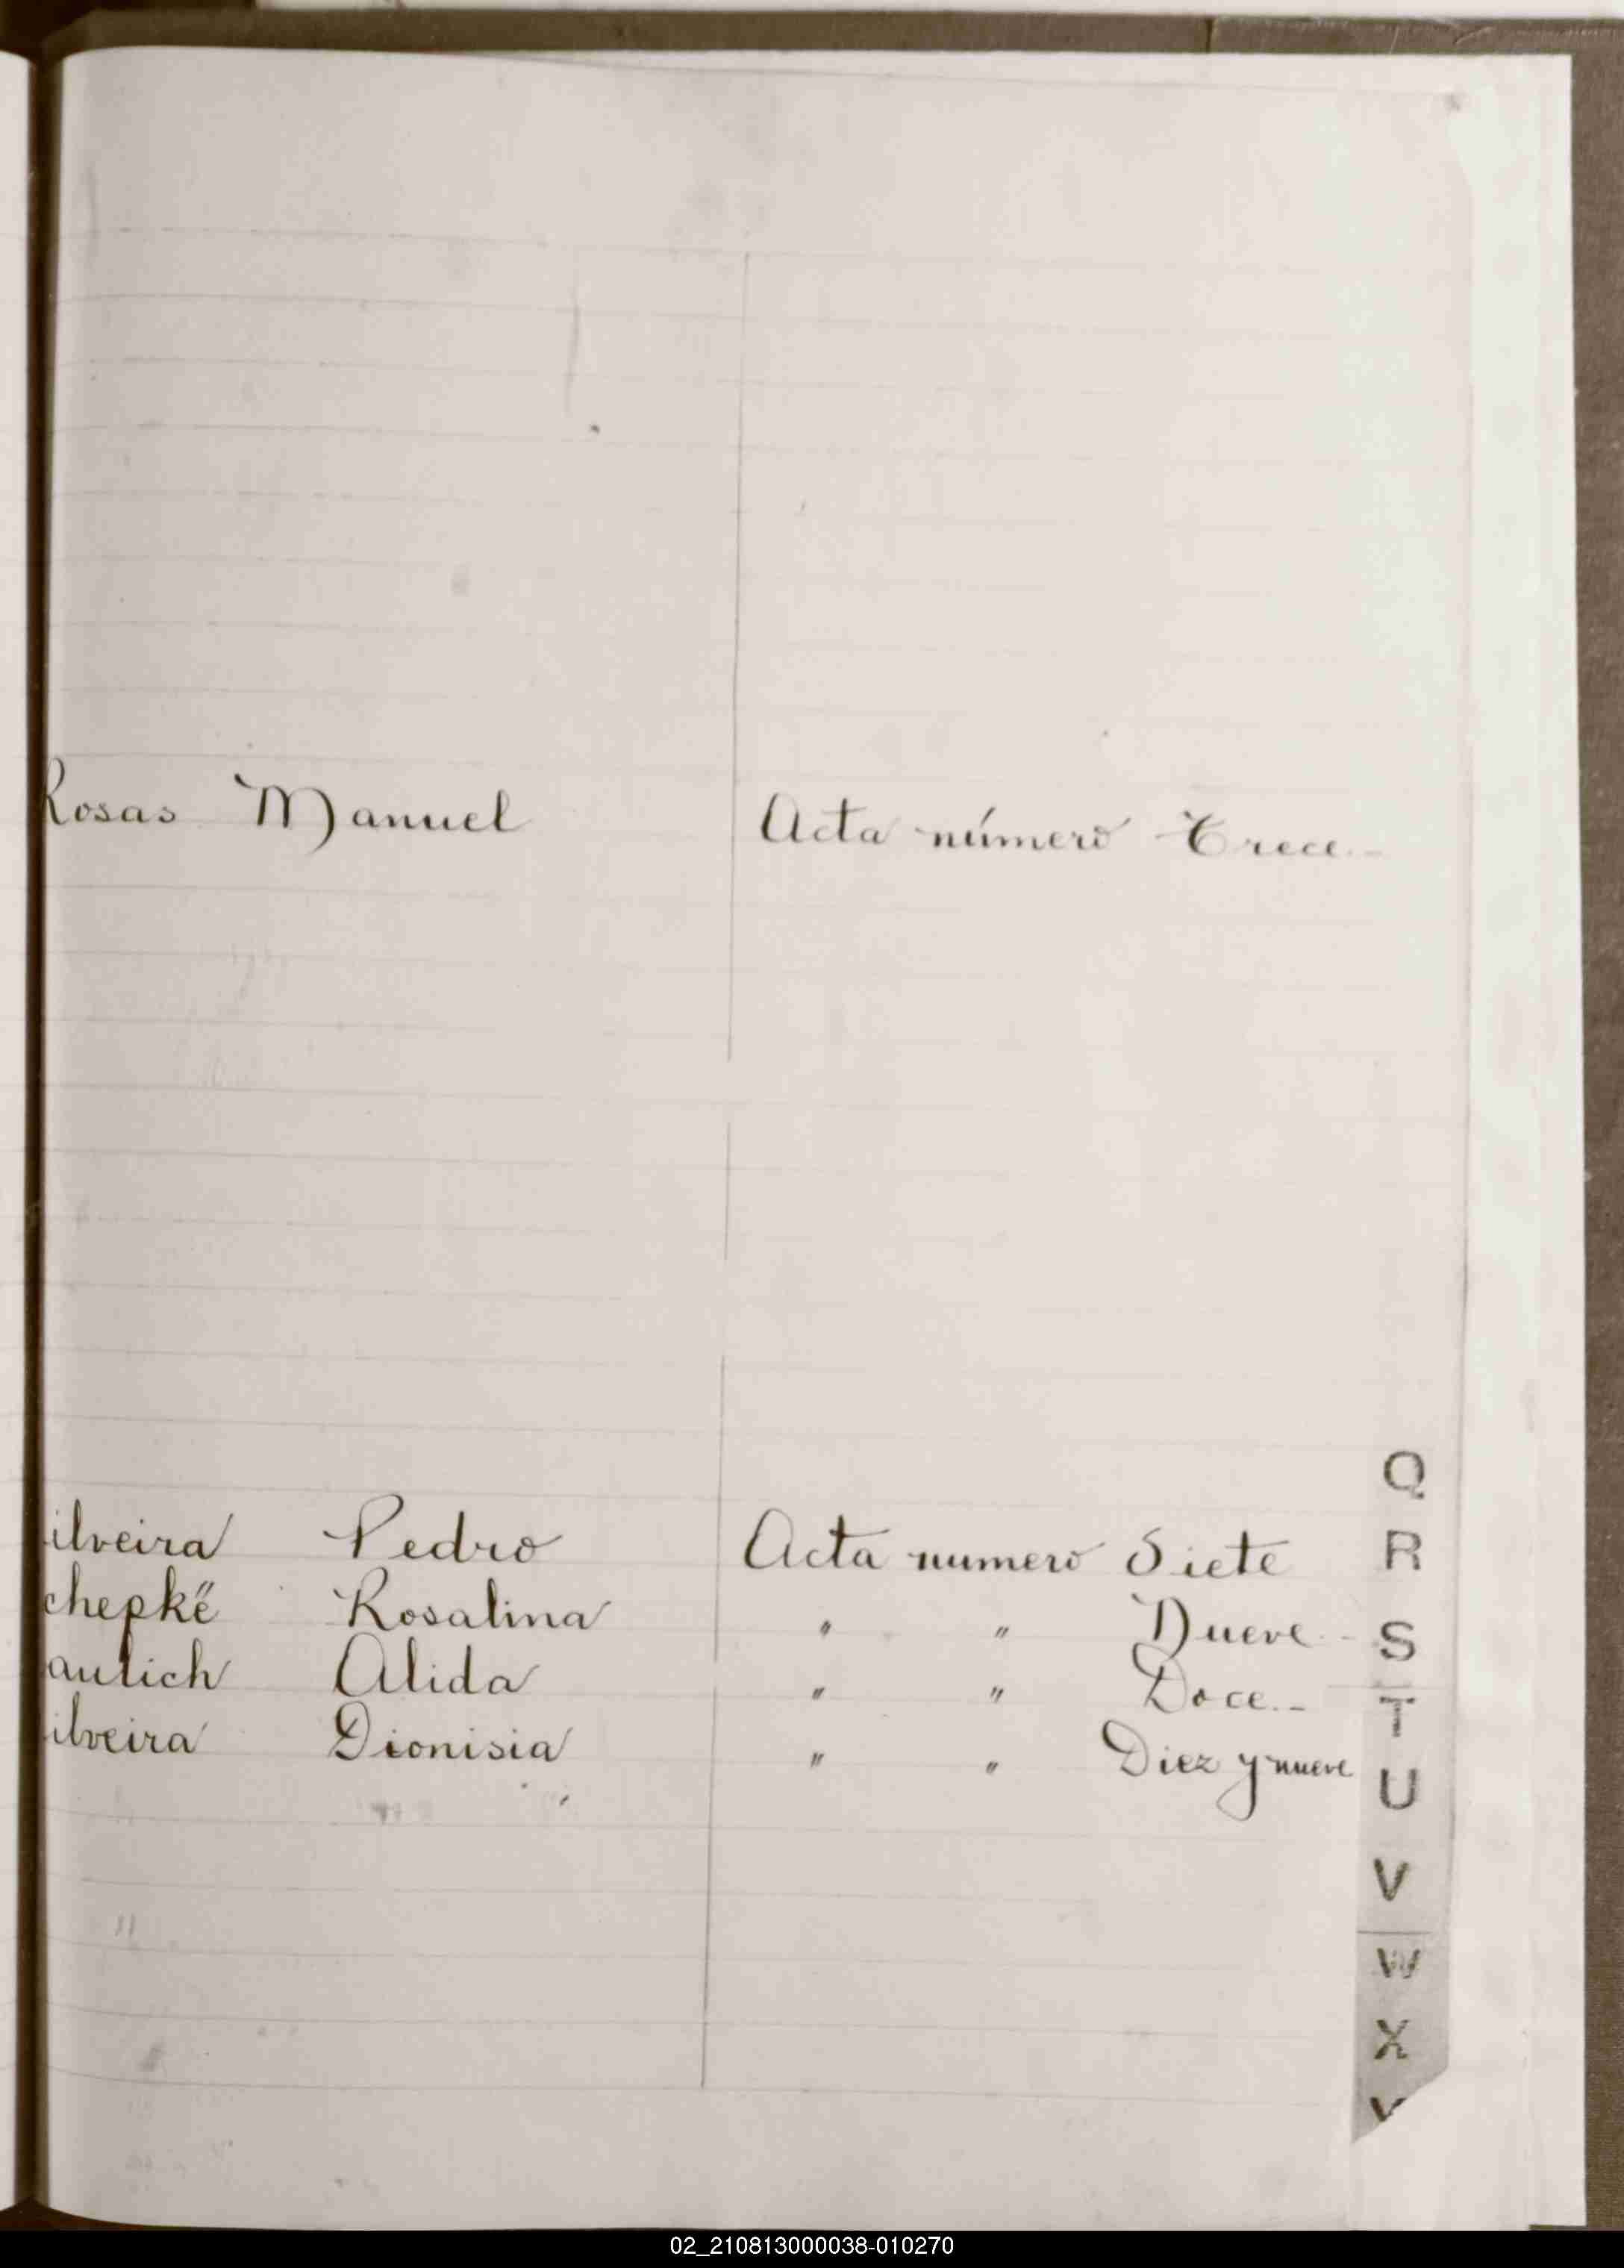 Rosas Manuel Acta número Trece.-
ilveira Pedro Acta numero Siete
chepkë Rosalina " " Nueve.-
aulich Alida " " Doce.-
ilveira Dionisia " " Diez y nueve
Q
R
S
T
U
V
W
X
Y
02_210813000038-010270